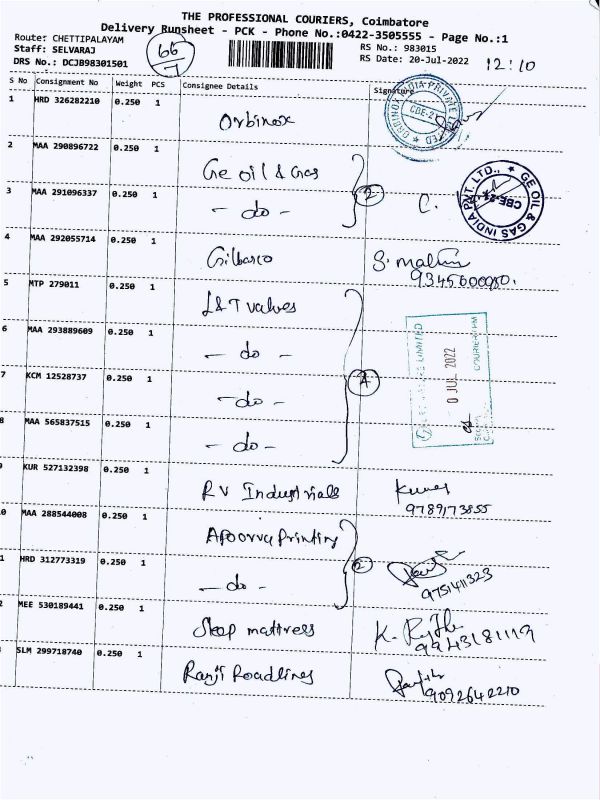 THE PROFESSIONAL COURIERS, Coimbatore
Delivery Runsheet - PCK - Phone No.:0422-3505555 - Page No.:1
Route: CHETTIPALAYAM
Staff: SELVARAJ
DRS No.: DCJB98301501
66
7
RS No.: 983015
RS Date: 20-Jul-2022
12:10
S No Consignment No Weight PCS Consignee Details Signature
1 HRD 326282210 0.250 1 Orbinox
ORBINOX INDIA PRIVATE LIMITED
CBE-2
2 MAA 290896722 0.250 1 Ge oil & Gas
3 MAA 291096337 0.250 1 - do -
2
GE OIL & GAS INDIA PVT. LTD.,
4 MAA 292055714 0.250 1 Gilbarco
9345600090.
5 MTP 279011 0.250 1 L&T valves
6 MAA 293889609 0.250 1 - do -
7 KCM 12528737 0.250 1 - do -
4
8 MAA 565837515 0.250 1 - do -
0 JUL 2022
9 KUR 527132398 0.250 1 RV Industrials Kumar
9789173855
0 MAA 288544008 0.250 1 Apoorva Printing
1 HRD 312773319 0.250 1 - do -
2
9751411323
2 MEE 530189441 0.250 1 Sleep mattress
9943181119
SLM 299718740 0.250 1 Ranji Roadlines
9092642210